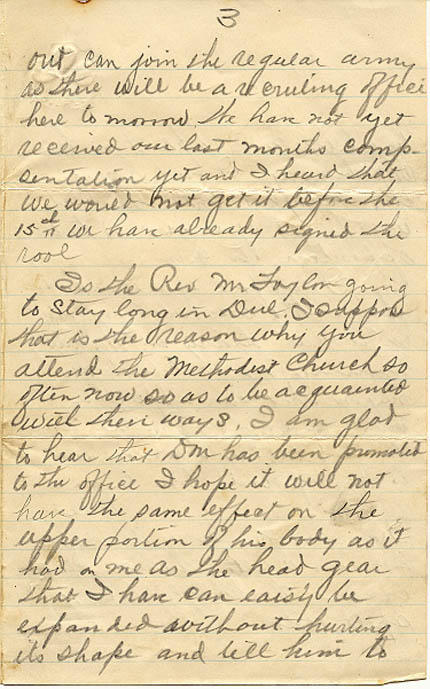 3
out can join the regular army
as there will be a recruiting office
here to morrow We have not yet
received our last months comp-
sentation yet and I heard that
we would not get it before the
15th we have already signed the
rool
Is the Rev Mr Taylor going
to stay long in Dul. I suppose
that is the reason why you
attend the Methodist Church so
often now so as to be acquainted
with their ways. I am glad
to hear that DM has been promoted
to the office I hope it will not
have the same effect on the
upper portion of his body as it
had on me as the head gear
that I have can eaisly be
expanded without hurting
its shape and tell him to